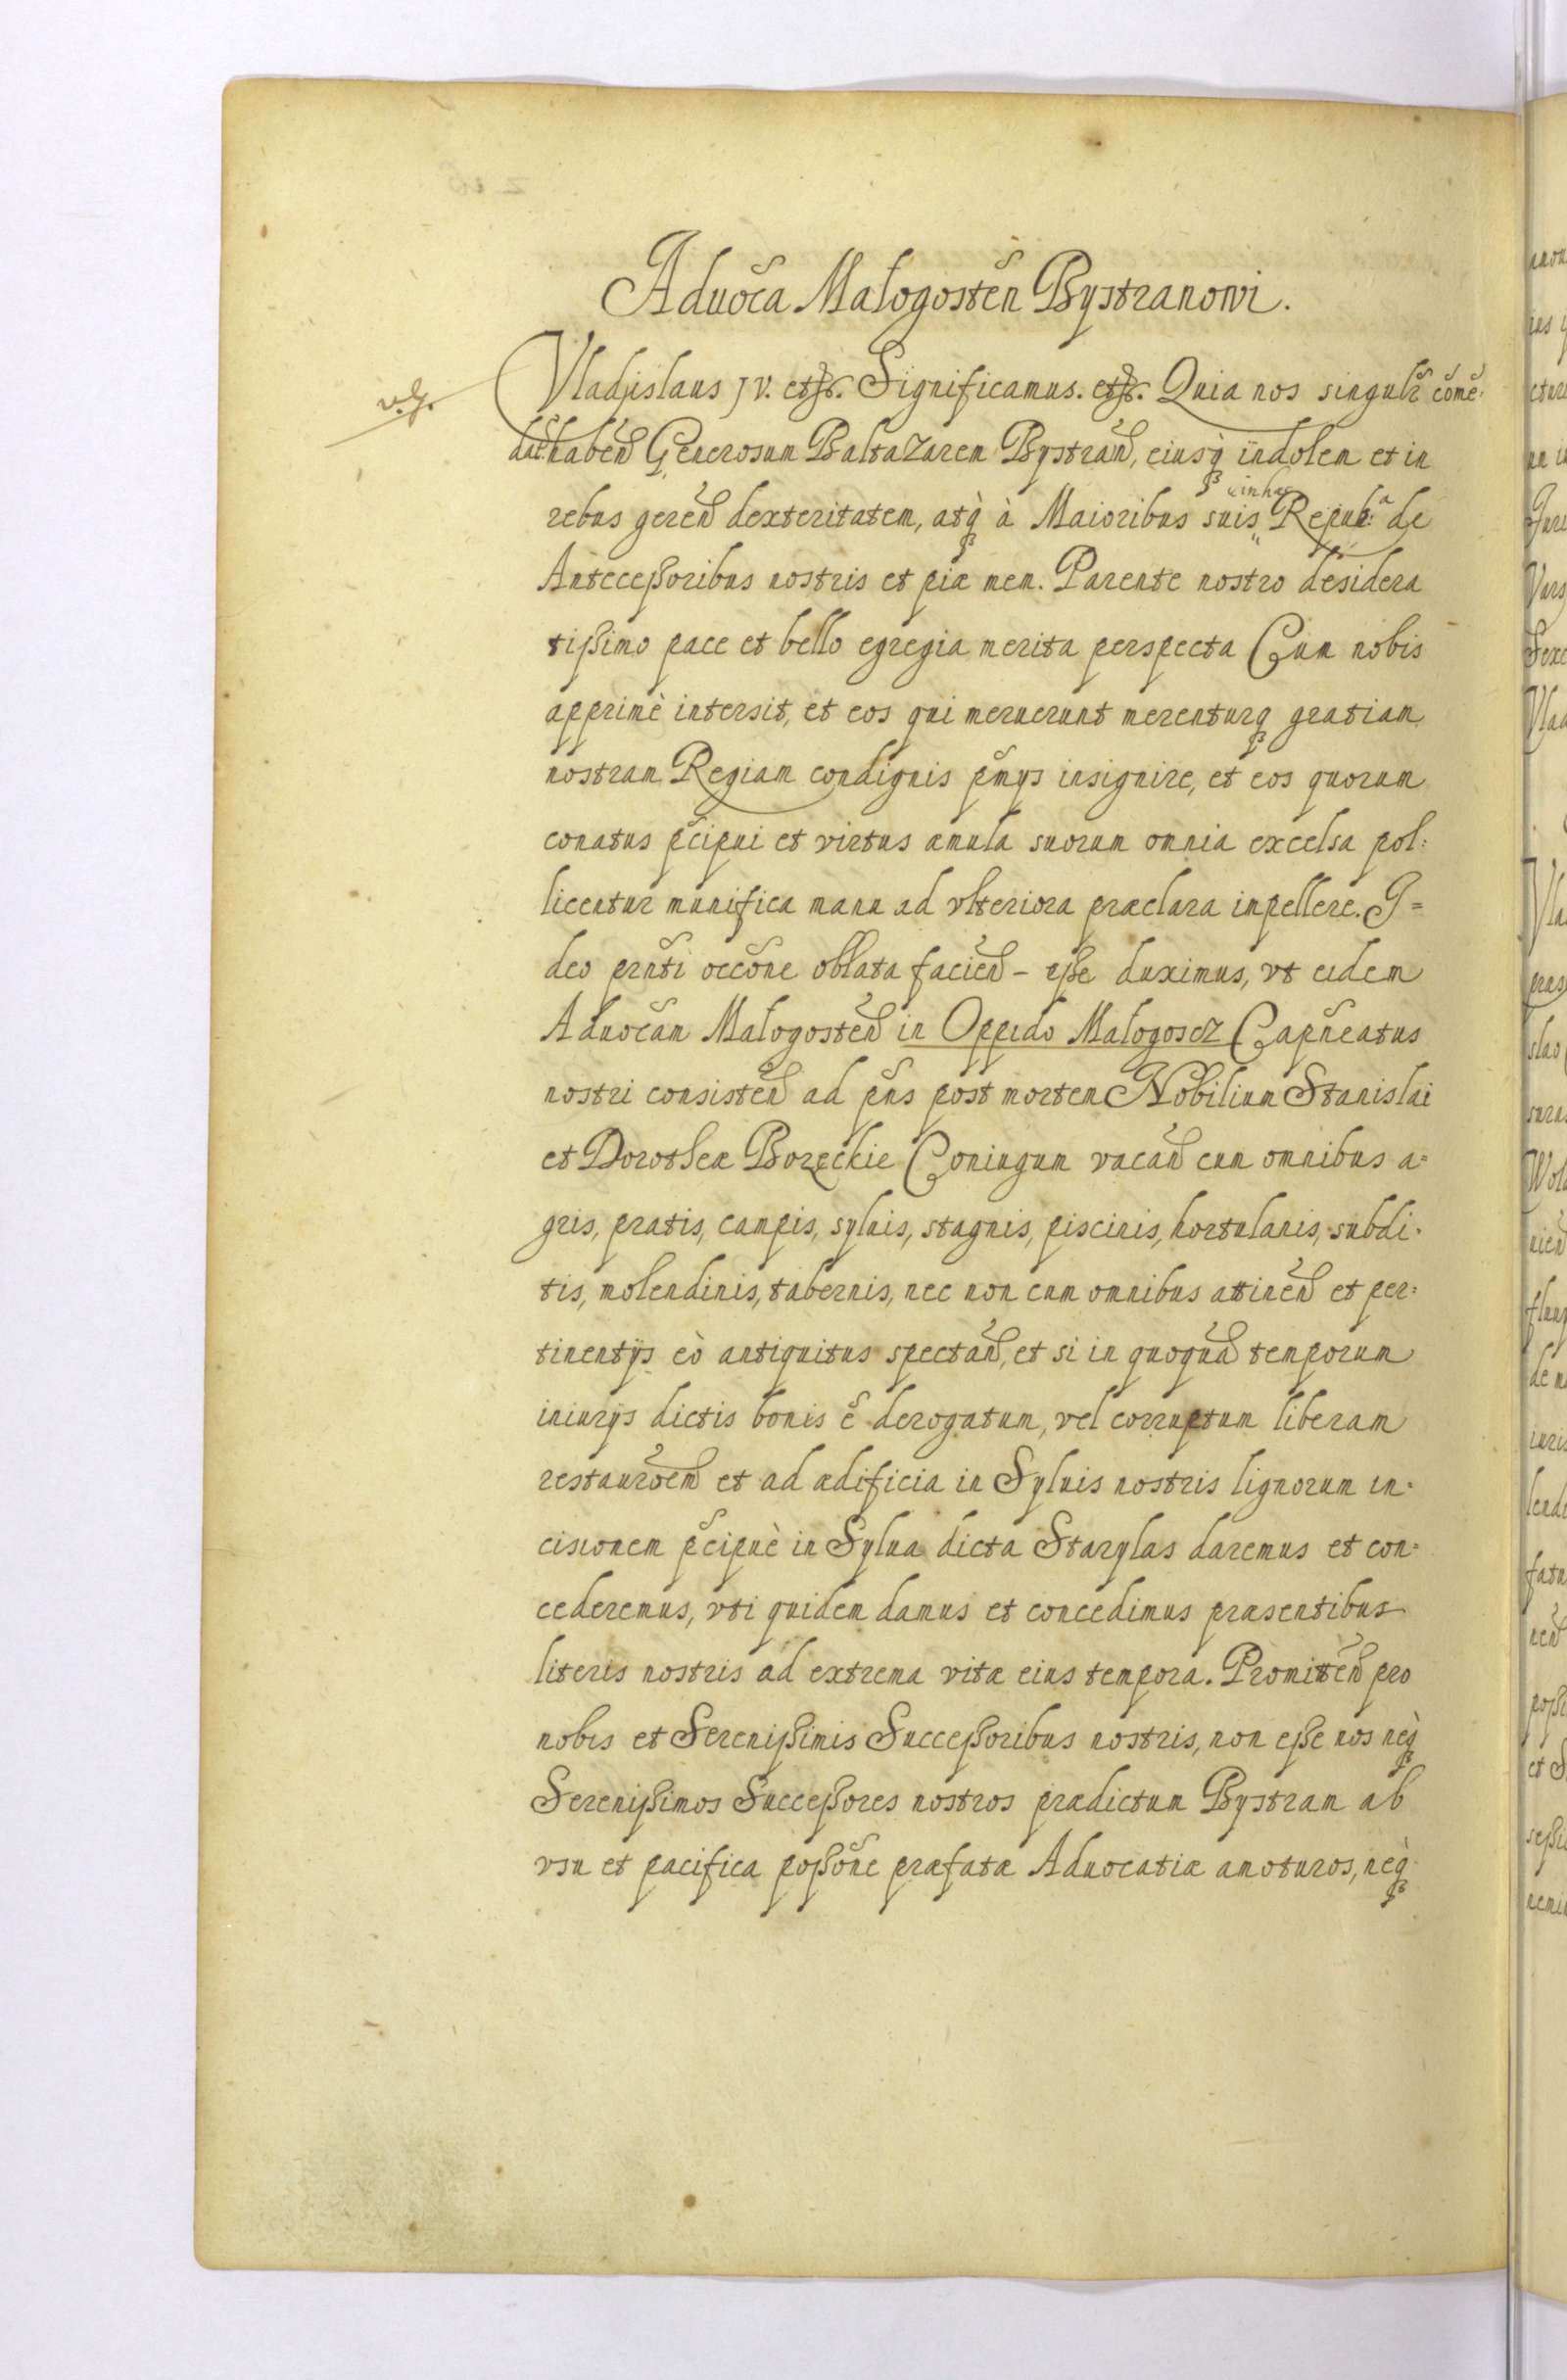 Aduoca Malogosten Bystranowi.
Vladislaus IV. etc. Significamus. etc. Quia nos singulr come:
dat haben Generosum Baltazarem Bystran, eiusq indolem et in
in hac
rebus geren dexteritatem, atq à Maioribus suis Repub:a de
Antecessoribus nostris et piæ mem. Parente nostro desidera
tissimo pace et bello egregia merita perspecta Cum nobis
apprimè intersit, et eos qui meruerunt merenturq gratiam
nostram Regiam condignis pmys insignire, et eos quorum
conatus pcipui et virtus æmula suorum omnia excelsa pol:
licentur munifica manu ad vlteriora præclara inpellere. I=
deo prnti occone oblata facien - esse duximus, vt eidem
Aduocam Malogosten in Oppido Malogoscz Capneatus
nostri consisten ad pns post mortem Nobilium Stanislai
et Dorotheæ Boreckie Coniugum vacan cum omnibus a=
gris, pratis, campis, syluis, stagnis, piscinis, hortulanis, subdi:
tis, molendinis, tabernis, nec non cum omnibus attinen et per:
tinentijs eò antiquitus spectan, et si in quoquā temporum
iniurijs dictis bonis ē derogatum, vel corruptum liberam
restauroem et ad ædificia in Syluis nostris lignorum in:
cisionem pcipuè in Sylua dicta Starylas daremus et con=
cederemus, vti quidem damus et concedimus præsentibus
literis nostris ad extrema vitæ eius tempora. Promitten pro
nobis et Serenissimis Successoribus nostris, non esse nos neq
Serenissimos Successores nostros prædictum Bystran ab
vsu et pacifica possone præfatæ Aduocatiæ amoturos, neq